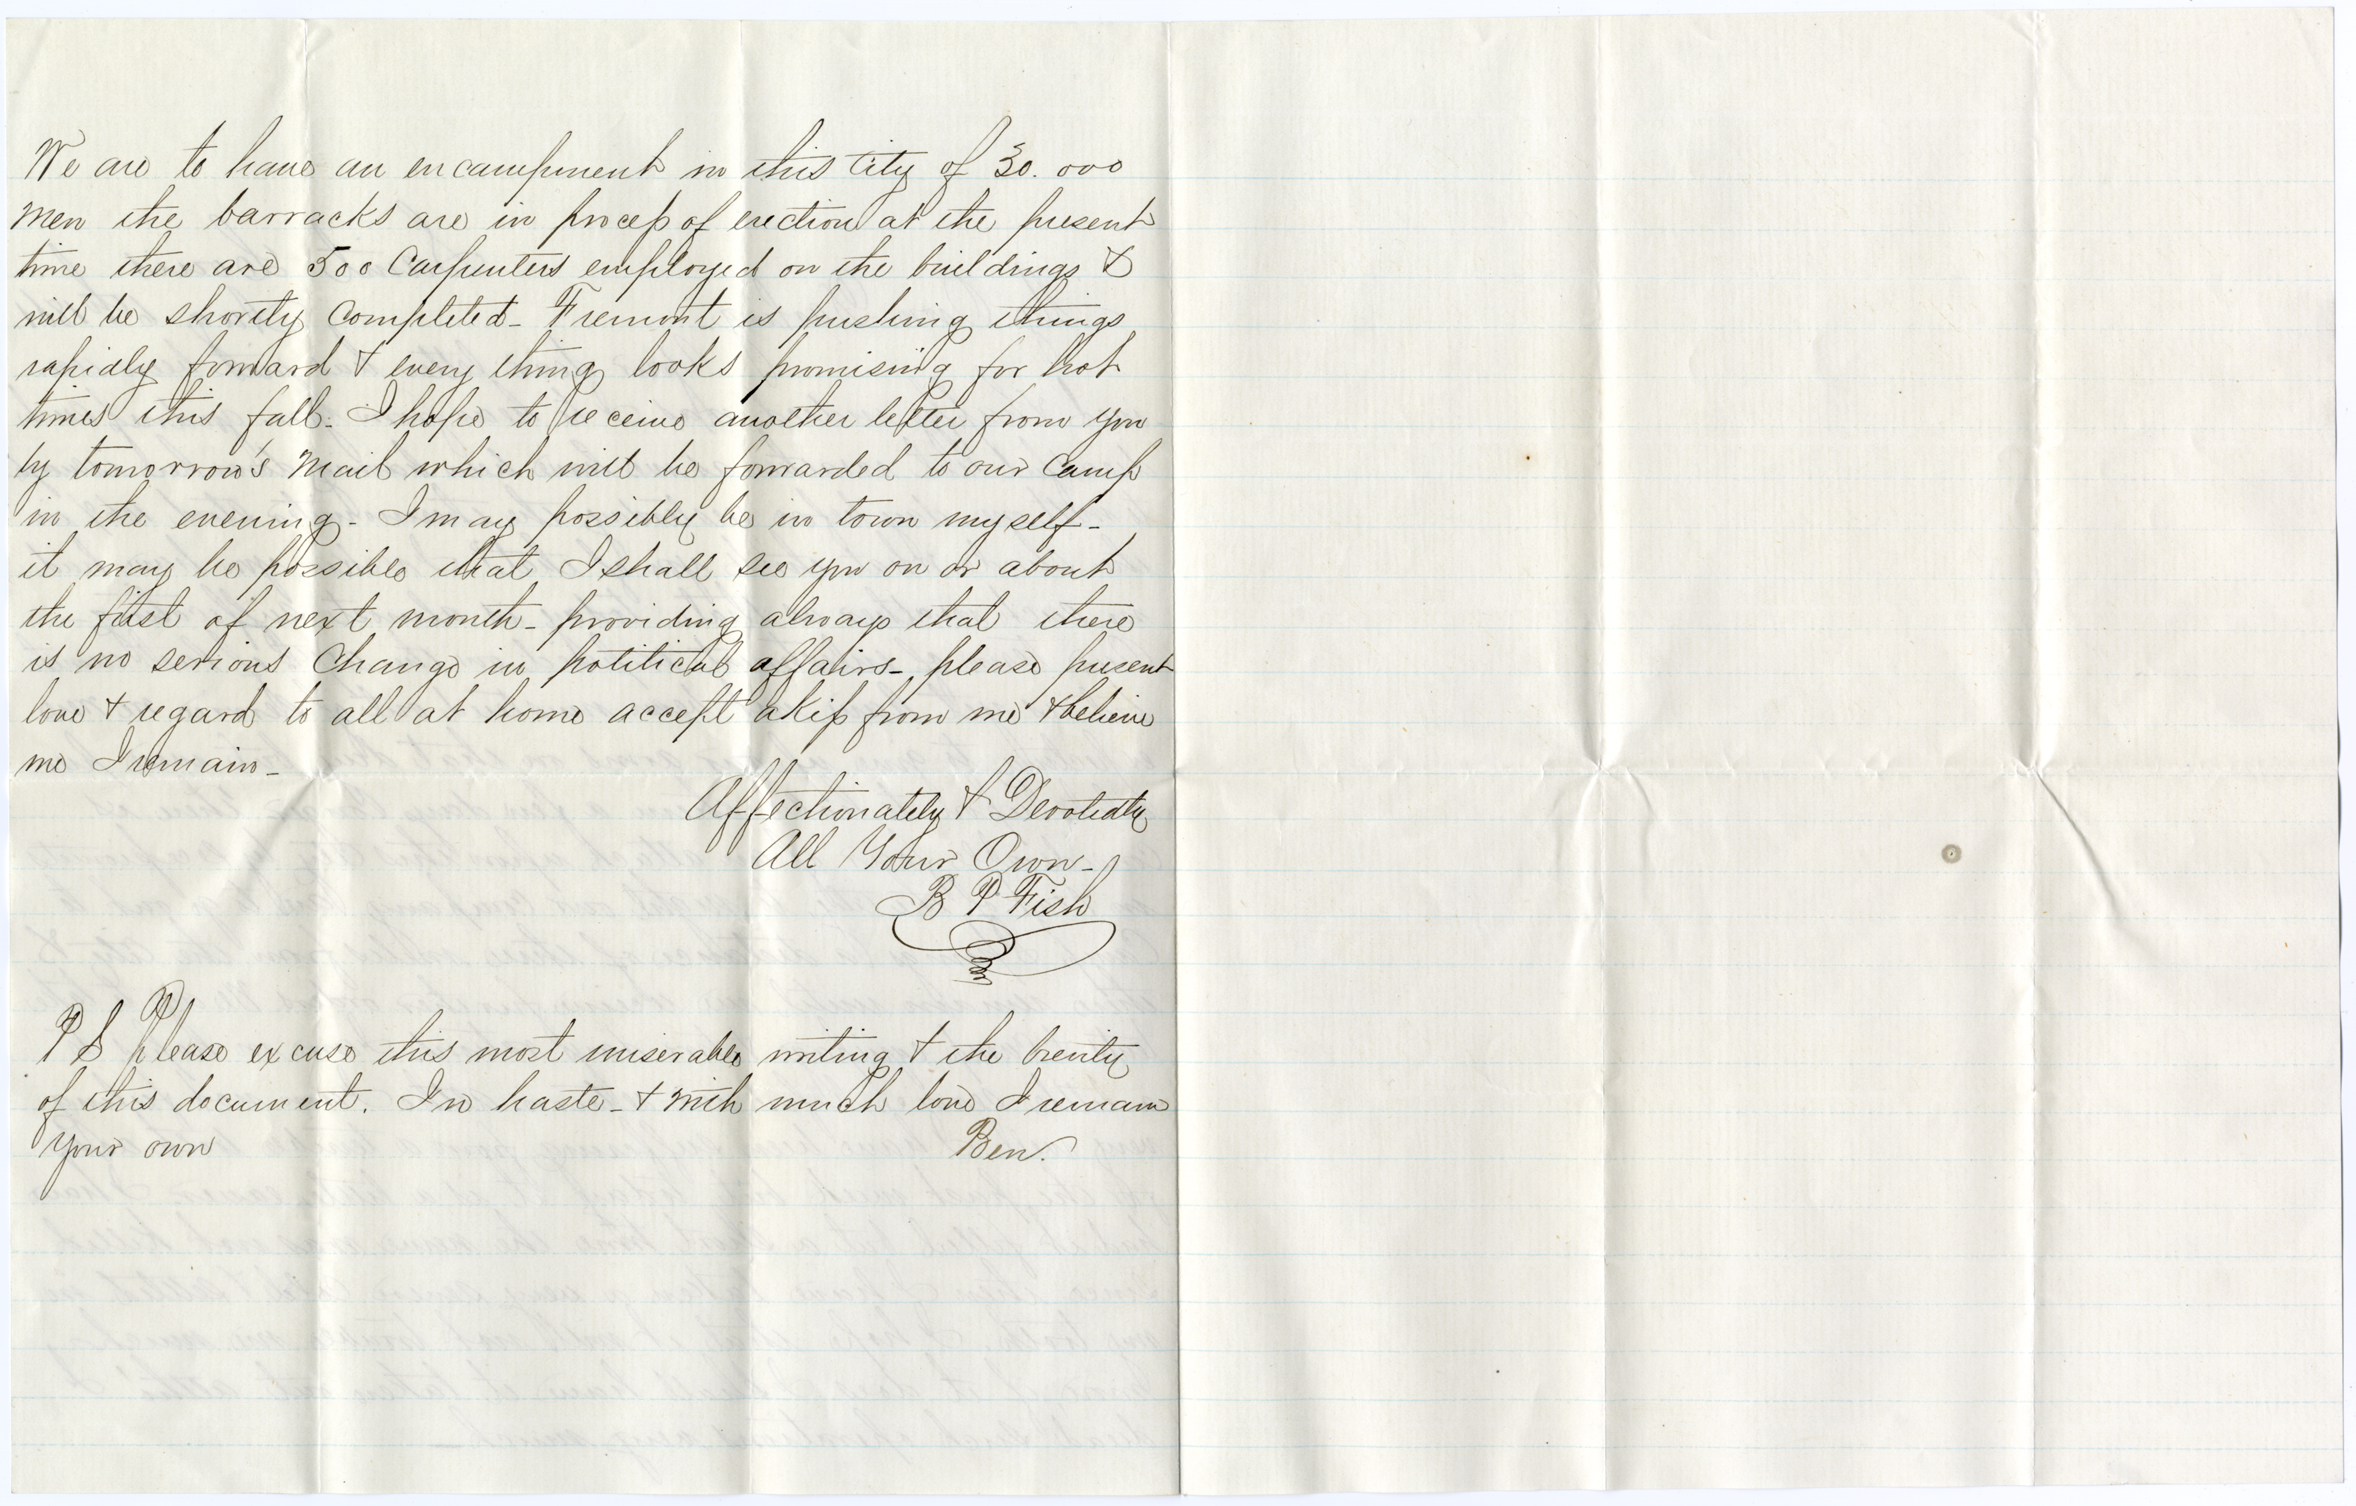 We are to have an encampment in this City of 30.000
men the barracks are in process of erection at the present
time there are 500 Carpenters employed on the buildings &
will be shortly Completed - Fremont is pushing things
rapidly forward & every thing looks promising for hot
times this fall - I hope to receive another letter from you
by tomorrow's mail which will be forwarded to our Camp
in the evening - I may possibly be in town myself -
it may be possible that I shall see you on or about
the first of next month - providing always that there
is no serious Change in political affairs - please present
love & regard to all at home accept a kiss from me & believe
me I remain -
Affectionately & Devotedly
All Your Own -
B P Fish
P S Please excuse this most miserable writing & the brevity
of this document. In haste - & with much love I remain
Your own Ben.